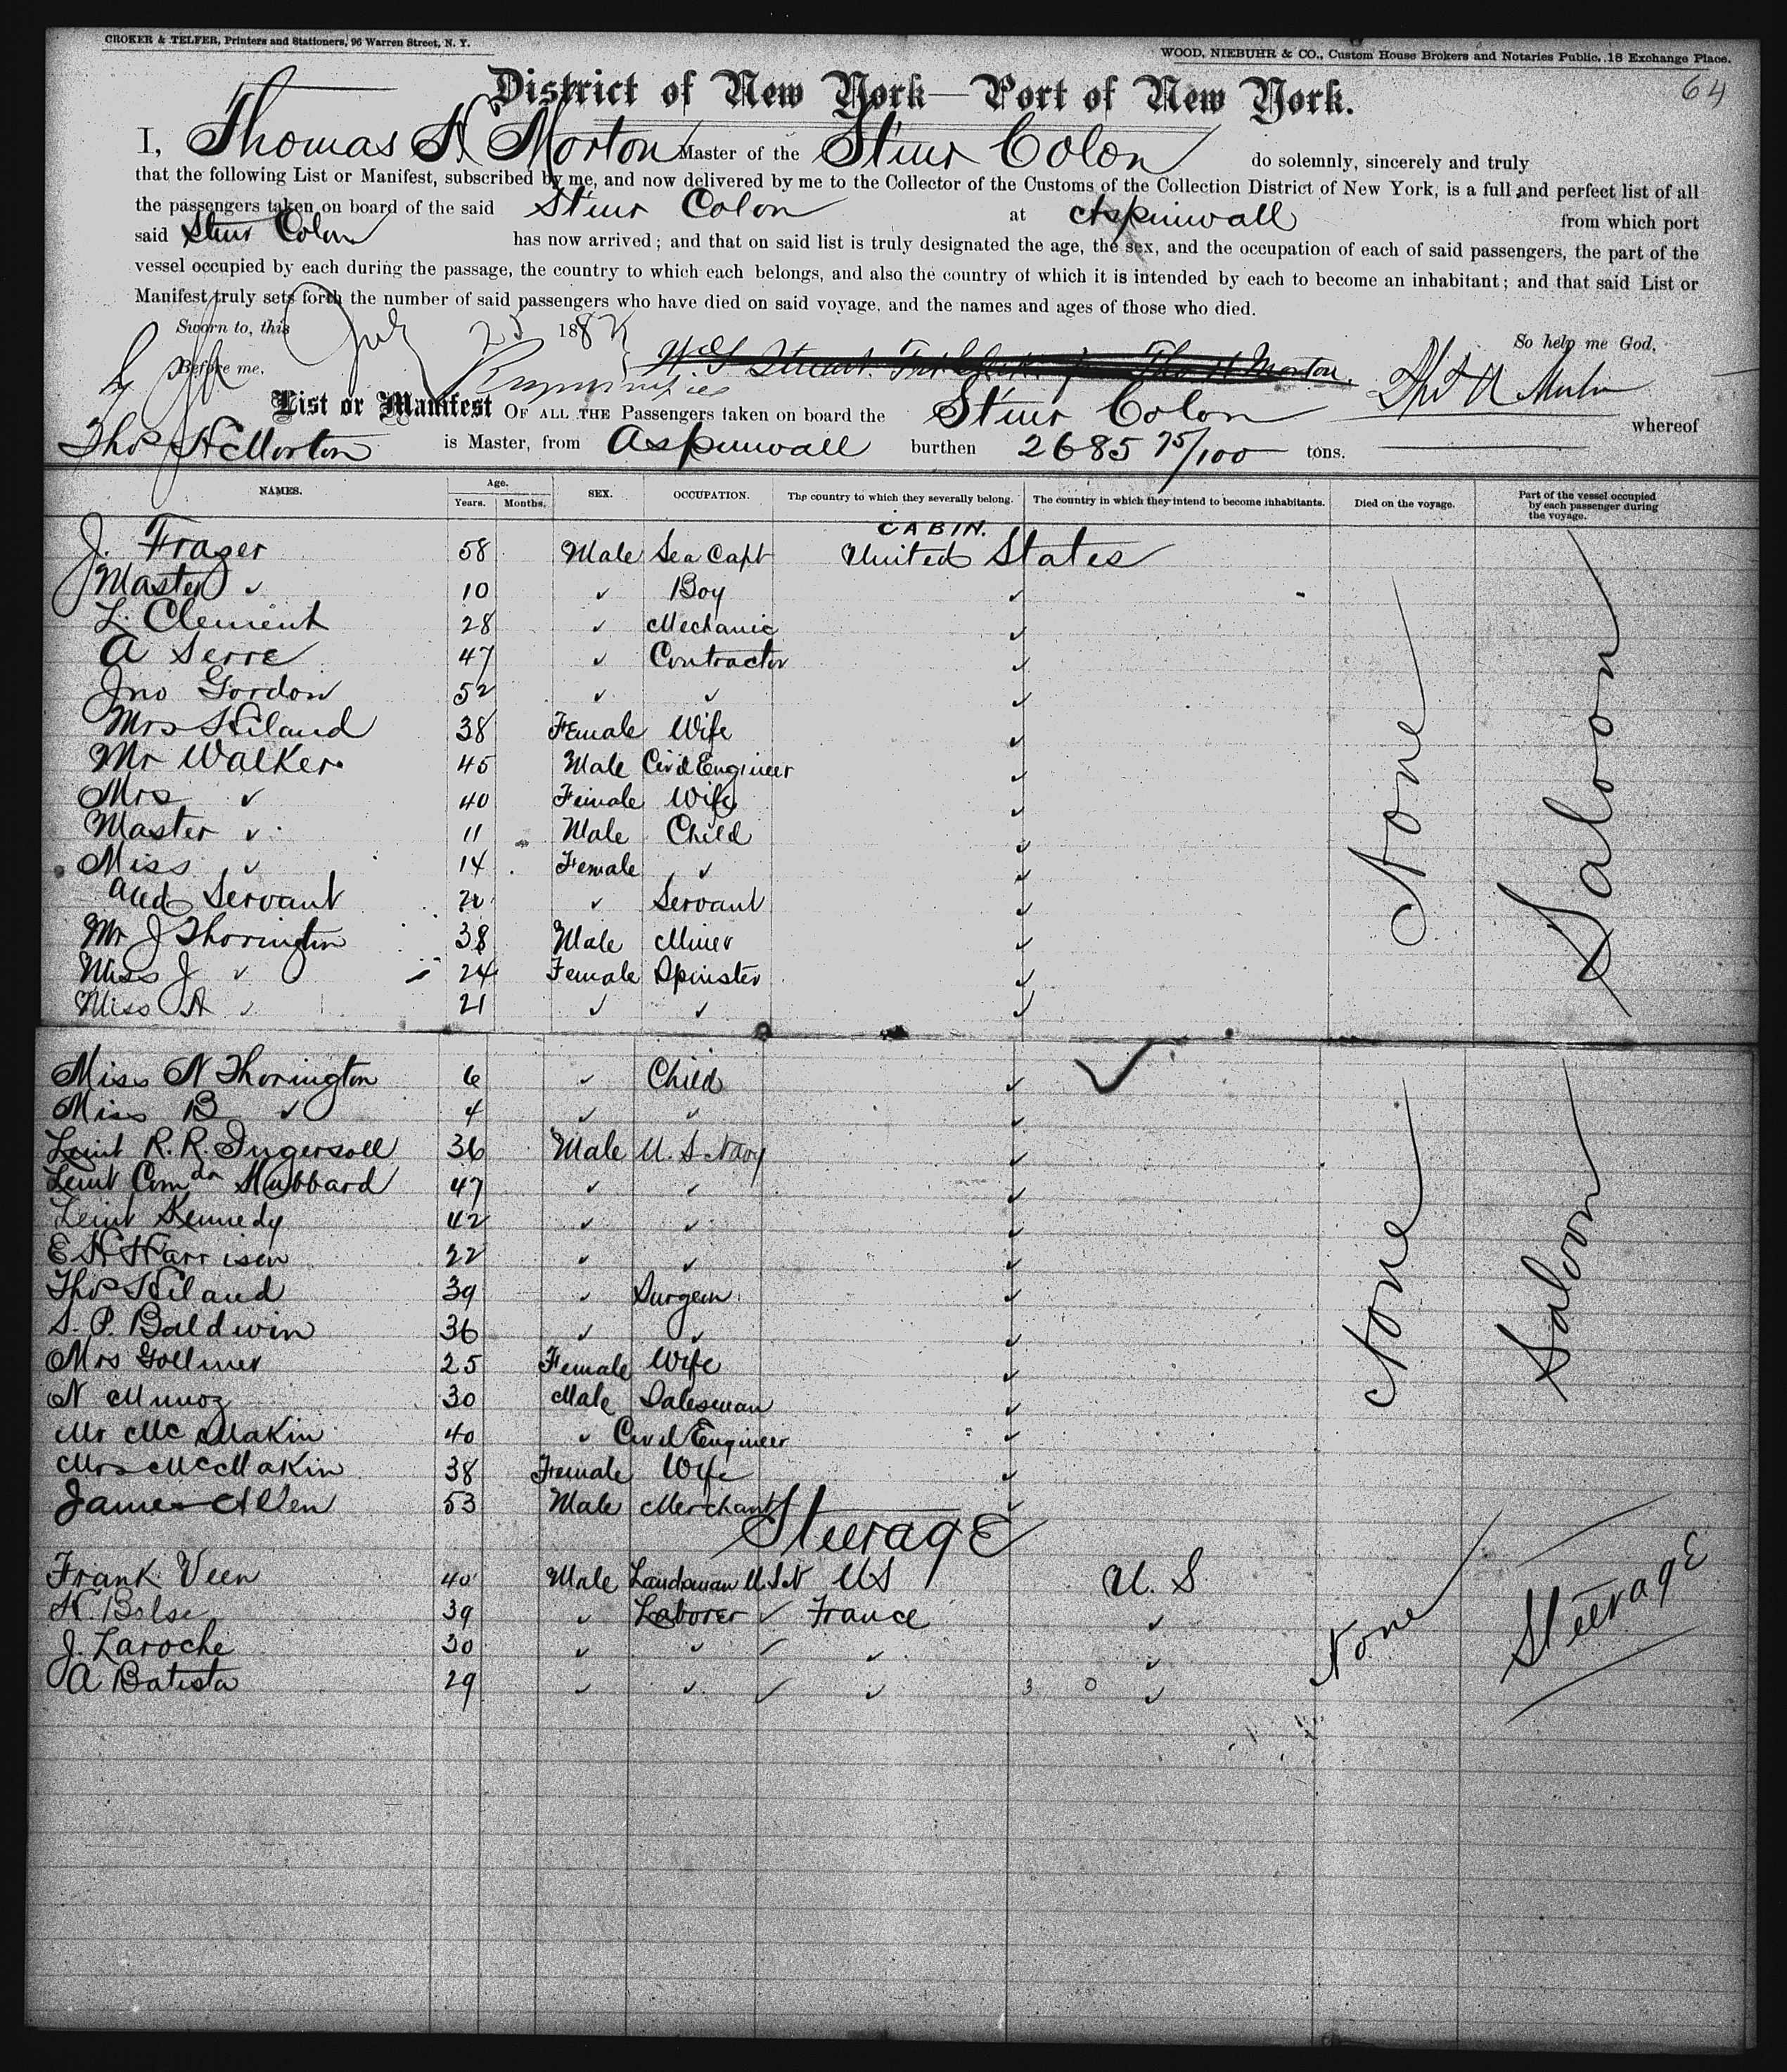 CROKER & TELFER, Printers and Stationers, 96 Warren Street, N. Y.
WOOD, NIEBUHR & CO., Custom House Brokers and Notaries Public, 18 Exchange Place.
64
District of New York—Port of New York.
I, Thomas H Morton Master of the Stmr Colon do solemnly, sincerely and truly
that the following List or Manifest, subscribed by me, and now delivered by me to the Collector of the Customs of the Collection District of New York, is a full and perfect list of all
the passengers taken on board of the said Stmr Colon at Aspinwall from which port
said Stmr Colon has now arrived; and that on said list is truly designated the age, the sex, and the occupation of each of said passengers, the part of the
vessel occupied by each during the passage, the country to which each belongs, and also the country of which it is intended by each to become an inhabitant; and that said List or
Manifest truly sets forth the number of said passengers who have died on said voyage, and the names and ages of those who died.
Sworn to, this July 25 188
So help me God,
Before me. Thos H Morton. Thos H Morton
List or Manifest OF ALL THE Passengers taken on board the Stmr Colon whereof
Thos H Morton is Master, from Aspinwall burthen 2685 75/100 tons.
NAMES. Age. Years. Months. SEX. OCCUPATION. The country to which they severally belong. The country in which they intend to become inhabitants. Died on the voyage. Part of the vessel occupied by each passenger during the voyage.
CABIN.
J. Frazer 58 Male Sea Capt United States
Master ✓ 10 ✓ Boy ✓
L. Clement 28 ✓ Mechanic ✓
A Serre 47 ✓ Contractor ✓
Jno Gordon 52 ✓ ✓ ✓
Mrs Hiland 38 Female Wife ✓
Mr Walker 45 Male Civil Engineer ✓
Mrs ✓ 40 Female Wife ✓
Master ✓ 11 Male Child ✓
Miss ✓ 14 Female ✓ ✓
and Servant 20 ✓ Servant ✓
Mr J Thorington 38 Male Miner ✓
Miss J ✓ 24 Female Spinster ✓
Miss A ✓ 21 ✓ ✓ ✓
None
Saloon
Miss N Thorington 6 ✓ Child ✓ ✓
Miss B ✓ 4 ✓ ✓ ✓
Leint R. R. Ingersoll 36 Male U. S Navy ✓
Leint Comdr Hubbard 47 ✓ ✓ ✓
Leint Kennedy 42 ✓ ✓ ✓
E H Harrison 22 ✓ ✓ ✓
Thos Hiland 39 ✓ Surgeon ✓
S. P. Baldwin 36 ✓ ✓ ✓
Mrs Gollmer 25 Female Wife ✓
N Munoz 30 Male Salesman ✓
Mr McMakin 40 ✓ Civil Engineer ✓
Mrs McMakin 38 Female Wife ✓
James Allen 53 Male Merchant ✓
None
Saloon
Steerage
Frank Veen 40 Male Landsman U.S.N US U. S
H. Bolse 39 ✓ Laborer ✓ France ✓
J. Laroche 30 ✓ ✓ ✓ ✓ ✓
A Batista 29 ✓ ✓ ✓ ✓ 3 0 ✓
None
Steerage